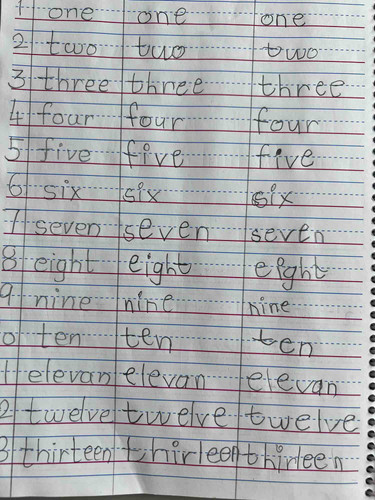 1 one one one
2 two two two
3 three three three
4 four four four
5 five five five
6 six six six
7 seven seven seven
8 eight eight eight
9 nine nine nine
0 ten ten ten
1 elevan elevan elevan
2 twelve twelve twelve
3 thirteen thirleen thirleen